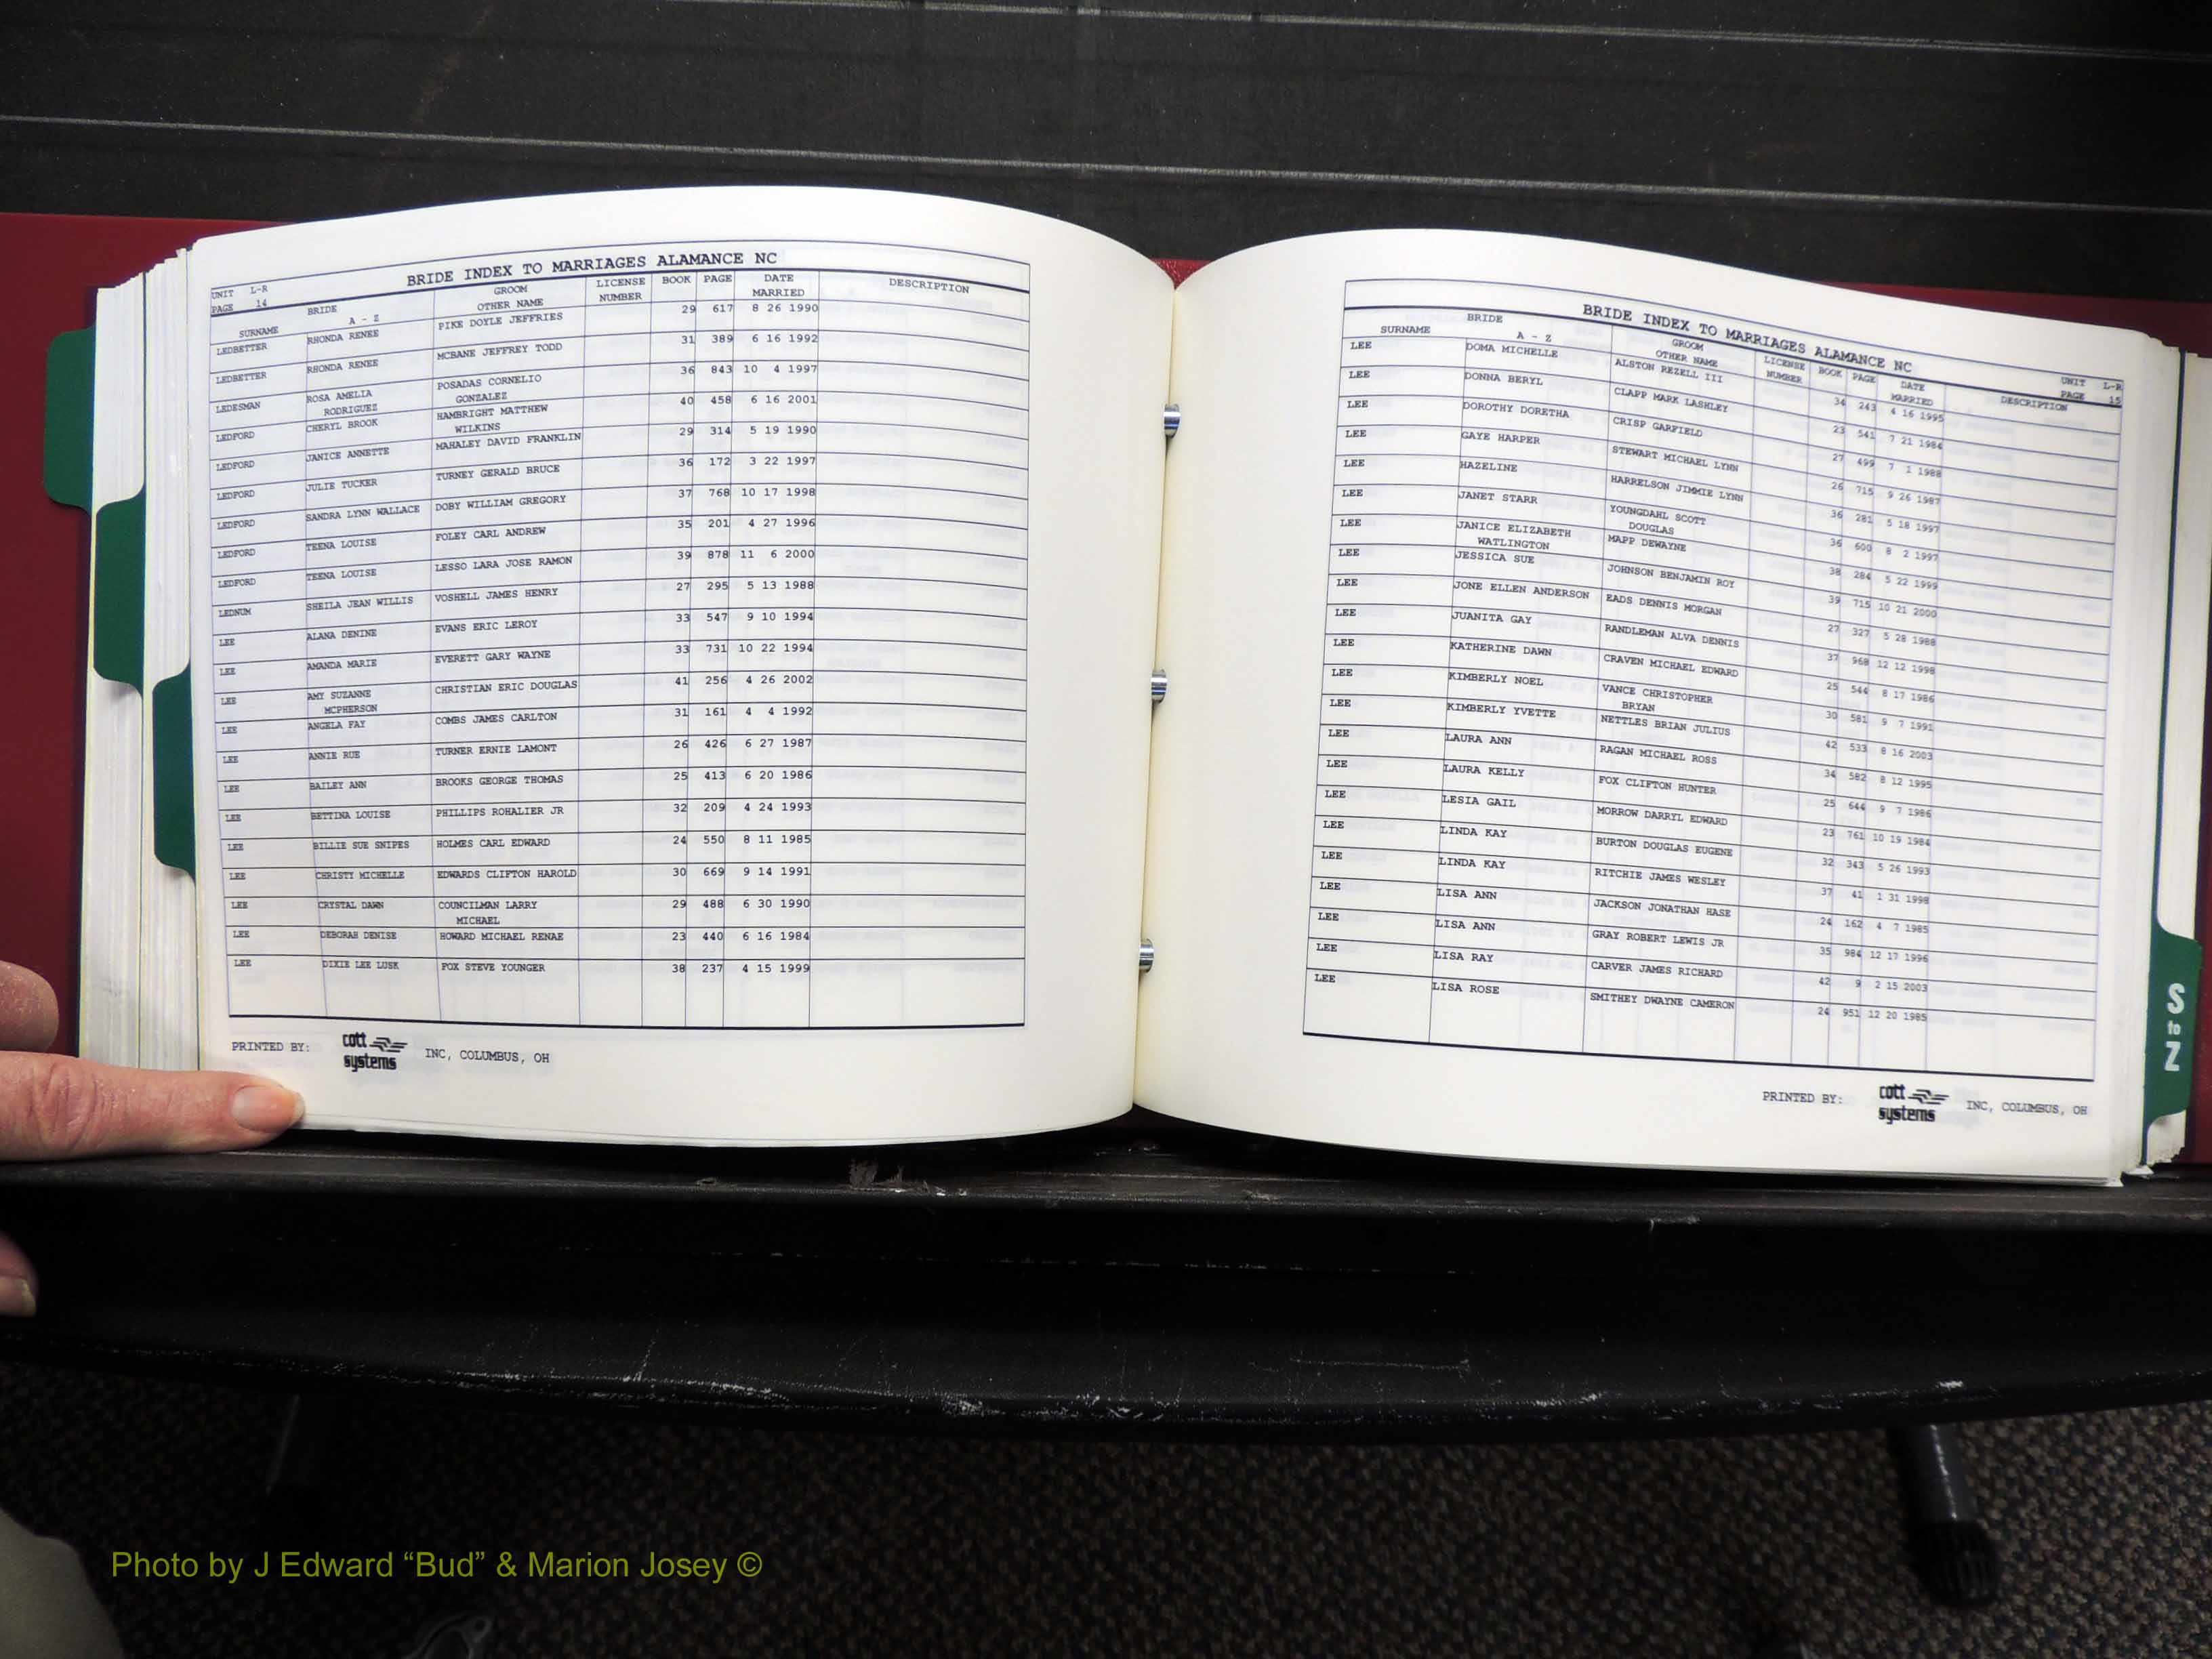 BRIDE INDEX TO MARRIAGES ALAMANCE NC
UNIT L-R
PAGE 14
SURNAME BRIDE A - Z GROOM OTHER NAME LICENSE NUMBER BOOK PAGE DATE MARRIED DESCRIPTION
LEDBETTER RHONDA RENEE PIKE DOYLE JEFFRIES 29 617 8 26 1990
LEDBETTER RHONDA RENEE MCBANE JEFFREY TODD 31 389 6 16 1992
LEDESMAN ROSA AMELIA RODRIGUEZ POSADAS CORNELIO GONZALEZ 36 843 10 4 1997
LEDFORD CHERYL BROOK HAMBRIGHT MATTHEW WILKINS 40 458 6 16 2001
LEDFORD JANICE ANNETTE MAHALEY DAVID FRANKLIN 29 314 5 19 1990
LEDFORD JULIE TUCKER TURNEY GERALD BRUCE 36 172 3 22 1997
LEDFORD SANDRA LYNN WALLACE DOBY WILLIAM GREGORY 37 768 10 17 1998
LEDFORD TEENA LOUISE FOLEY CARL ANDREW 35 201 4 27 1996
LEDFORD TEENA LOUISE LESSO LARA JOSE RAMON 39 878 11 6 2000
LEDNUM SHEILA JEAN WILLIS VOSHELL JAMES HENRY 27 295 5 13 1988
LEE ALANA DENINE EVANS ERIC LEROY 33 547 9 10 1994
LEE AMANDA MARIE EVERETT GARY WAYNE 33 731 10 22 1994
LEE AMY SUZANNE MCPHERSON CHRISTIAN ERIC DOUGLAS 41 256 4 26 2002
LEE ANGELA FAY COMBS JAMES CARLTON 31 161 4 4 1992
LEE ANNIE RUE TURNER ERNIE LAMONT 26 426 6 27 1987
LEE BAILEY ANN BROOKS GEORGE THOMAS 25 413 6 20 1986
LEE BETTINA LOUISE PHILLIPS ROHALIER JR 32 209 4 24 1993
LEE BILLIE SUE SNIPES HOLMES CARL EDWARD 24 550 8 11 1985
LEE CHRISTY MICHELLE EDWARDS CLIFTON HAROLD 30 669 9 14 1991
LEE CRYSTAL DAWN COUNCILMAN LARRY MICHAEL 29 488 6 30 1990
LEE DEBORAH DENISE HOWARD MICHAEL RENAE 23 440 6 16 1984
LEE DIXIE LEE LUSK FOX STEVE YOUNGER 38 237 4 15 1999
PRINTED BY: cott systems INC, COLUMBUS, OH
BRIDE INDEX TO MARRIAGES ALAMANCE NC
UNIT L-R
PAGE 15
SURNAME BRIDE A - Z GROOM OTHER NAME LICENSE NUMBER BOOK PAGE DATE MARRIED DESCRIPTION
LEE DOMA MICHELLE ALSTON REZELL III 34 243 4 16 1995
LEE DONNA BERYL CLAPP MARK LASHLEY 23 541 7 21 1984
LEE DOROTHY DORETHA CRISP GARFIELD 27 499 7 1 1988
LEE GAYE HARPER STEWART MICHAEL LYNN 26 715 9 26 1987
LEE HAZELINE HARRELSON JIMMIE LYNN 36 281 5 18 1997
LEE JANET STARR YOUNGDAHL SCOTT DOUGLAS 36 600 8 2 1997
LEE JANICE ELIZABETH WATLINGTON MAPP DEWAYNE 38 284 5 22 1999
LEE JESSICA SUE JOHNSON BENJAMIN ROY 39 715 10 21 2000
LEE JONE ELLEN ANDERSON EADS DENNIS MORGAN 27 327 5 28 1988
LEE JUANITA GAY RANDLEMAN ALVA DENNIS 37 968 12 12 1998
LEE KATHERINE DAWN CRAVEN MICHAEL EDWARD 25 544 8 17 1986
LEE KIMBERLY NOEL VANCE CHRISTOPHER BRYAN 30 581 9 7 1991
LEE KIMBERLY YVETTE NETTLES BRIAN JULIUS 42 533 8 16 2003
LEE LAURA ANN RAGAN MICHAEL ROSS 34 582 8 12 1995
LEE LAURA KELLY FOX CLIFTON HUNTER 25 644 9 7 1986
LEE LESIA GAIL MORROW DARRYL EDWARD 23 761 10 19 1984
LEE LINDA KAY BURTON DOUGLAS EUGENE 32 343 5 26 1993
LEE LINDA KAY RITCHIE JAMES WESLEY 37 41 1 31 1998
LEE LISA ANN JACKSON JONATHAN HASE 24 162 4 7 1985
LEE LISA ANN GRAY ROBERT LEWIS JR 35 984 12 17 1996
LEE LISA RAY CARVER JAMES RICHARD 42 9 2 15 2003
LEE LISA ROSE SMITHEY DWAYNE CAMERON 24 951 12 20 1985
PRINTED BY: cott systems INC, COLUMBUS, OH
S
to
Z
Photo by J Edward “Bud” & Marion Josey ©